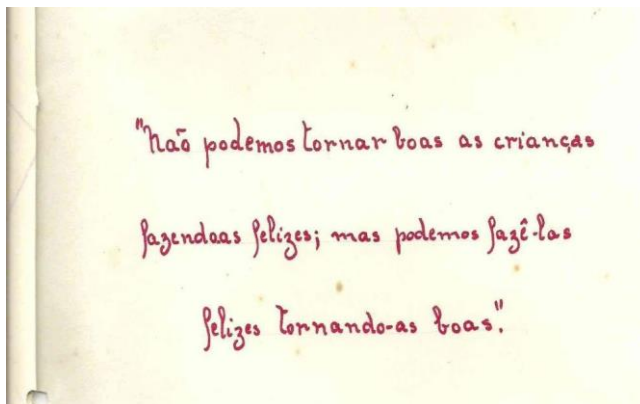 "Não podemos tornar boas as crianças
fazendoas felizes; mas podemos fazê-las
felizes tornando-as boas".